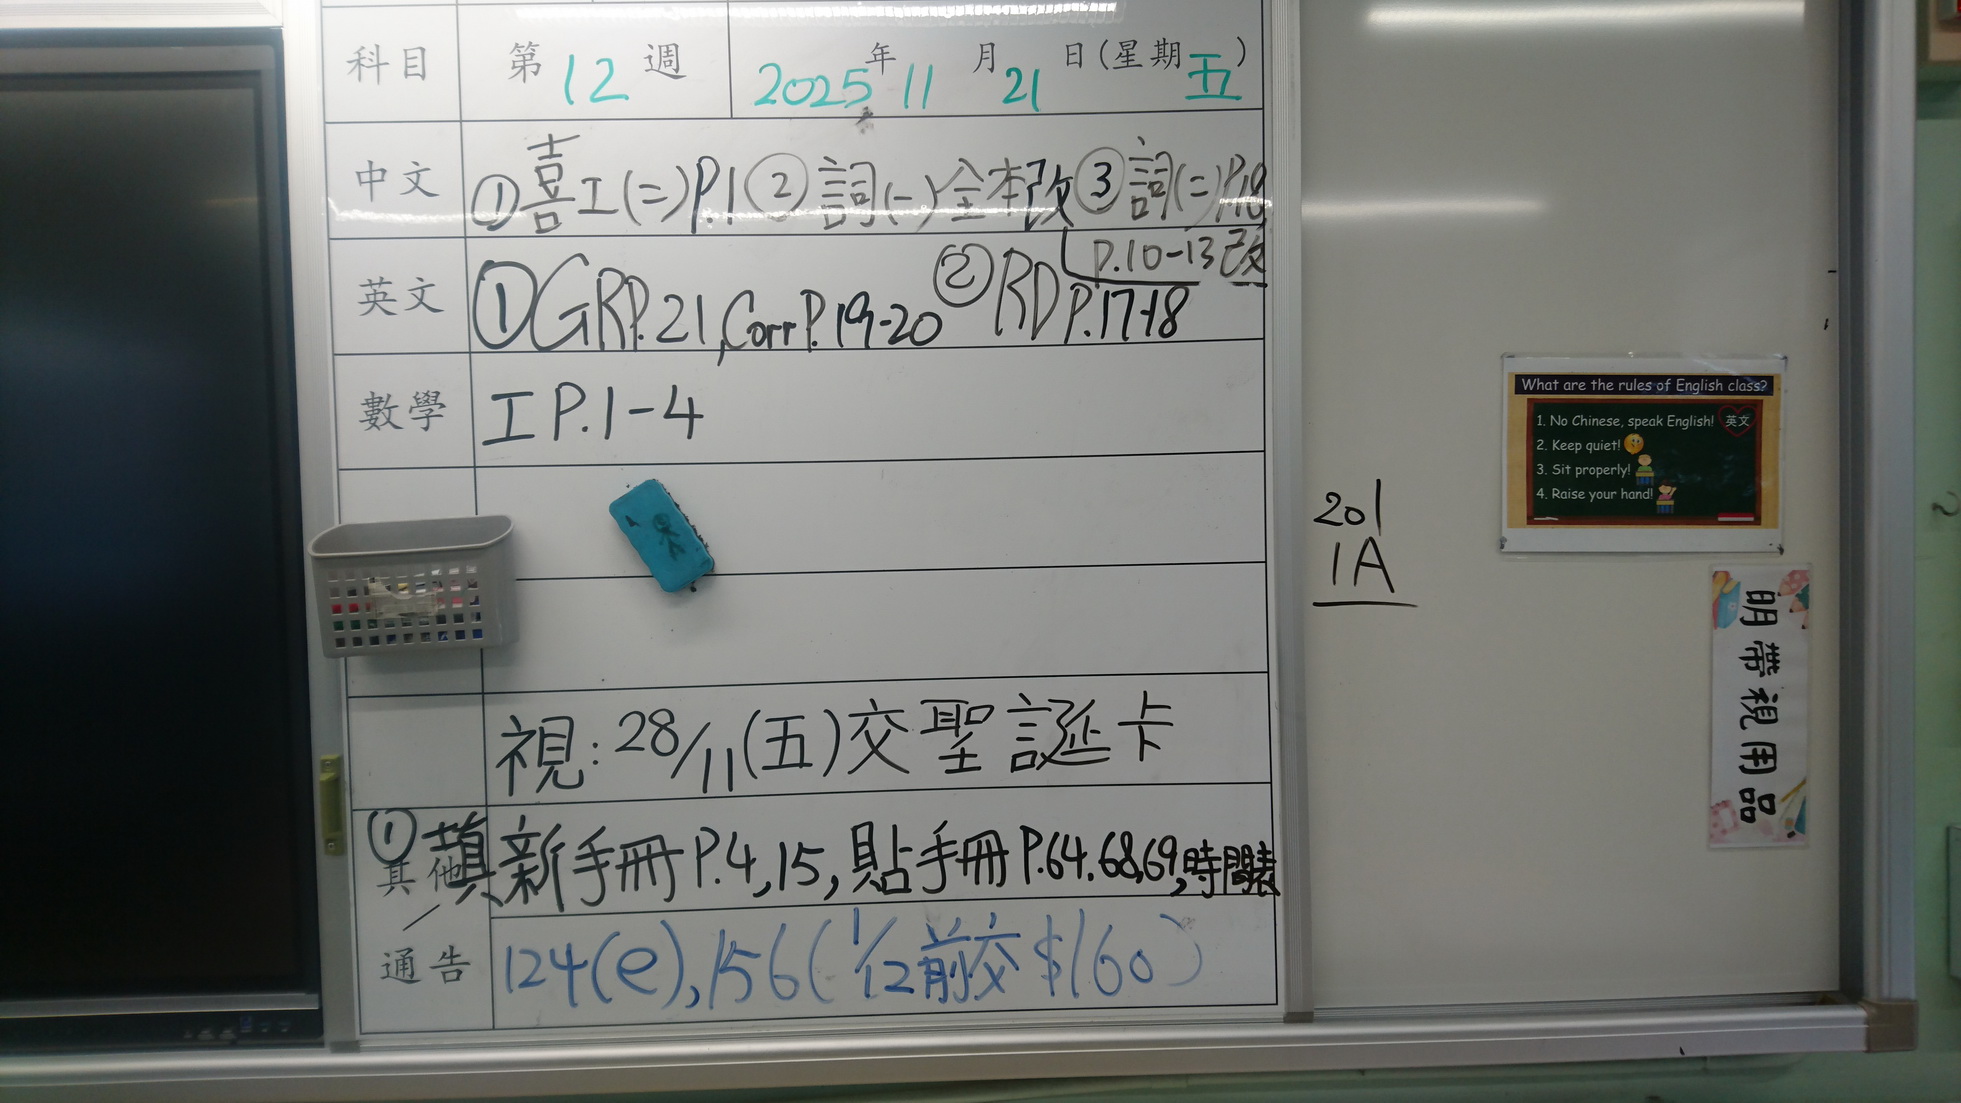 科目 第12週 2025年11月21日(星期五)
中文 ①喜工(二)P.1②詞(一)全本改③詞(二)P.18,
P.10-13改
英文 ①GRP.21,Corr P.19-20 ②RD P.17-18
數學 工P.1-4
視:28/11(五)交聖誕卡
①填新手冊P.4,15,貼手冊P.64.68,69,時間表
其他/通告
124(e),156(1/12前交$160)
201
1A
What are the rules of English class?
1. No Chinese, speak English! 英文
2. Keep quiet!
3. Sit properly!
4. Raise your hand!
明帶視用品